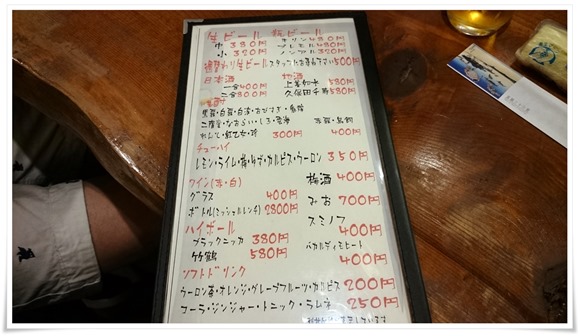 生ビール 瓶ビール
中 380円 キリン 480円
小 320円 プレモル 480円
ノンアル 320円
週替わり生ビール スタッフにお尋ね下さい 500円
日本酒 地酒
一合 400円 上善如水 580円
二合 800円 久保田千寿 580円
焼酎
二階堂・なおらい・しろ・雲海
300円 400円
チューハイ
レモン・ライム・梅・ゆず・カルピス・ウーロン 350円
ワイン(赤・白) 梅酒 400円
グラス 400円 みお 700円
ボトル(ミッシェルレンチ) 2800円 スミノフ
ハイボール 400円
ブラックニッカ 380円 バカルディモヒート
竹鶴 580円 400円
ソフトドリンク
ウーロン茶・オレンジ・グレープフルーツ・カルピス 200円
コーラ・ジンジャー・トニック・ラムネ 250円